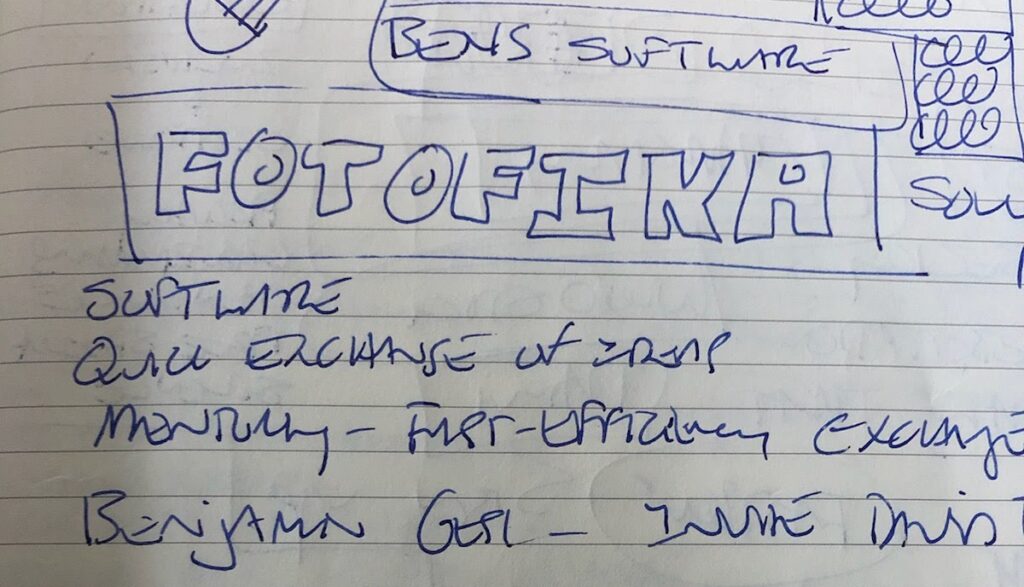 BENS SOFTWARE
FOTOFIKA
SOFTWARE
QUICK EXCHANGE OF IDEAS
MONTHLY - FAST-EFFICIENCY EXCHANGE
BENJAMIN - INVITE